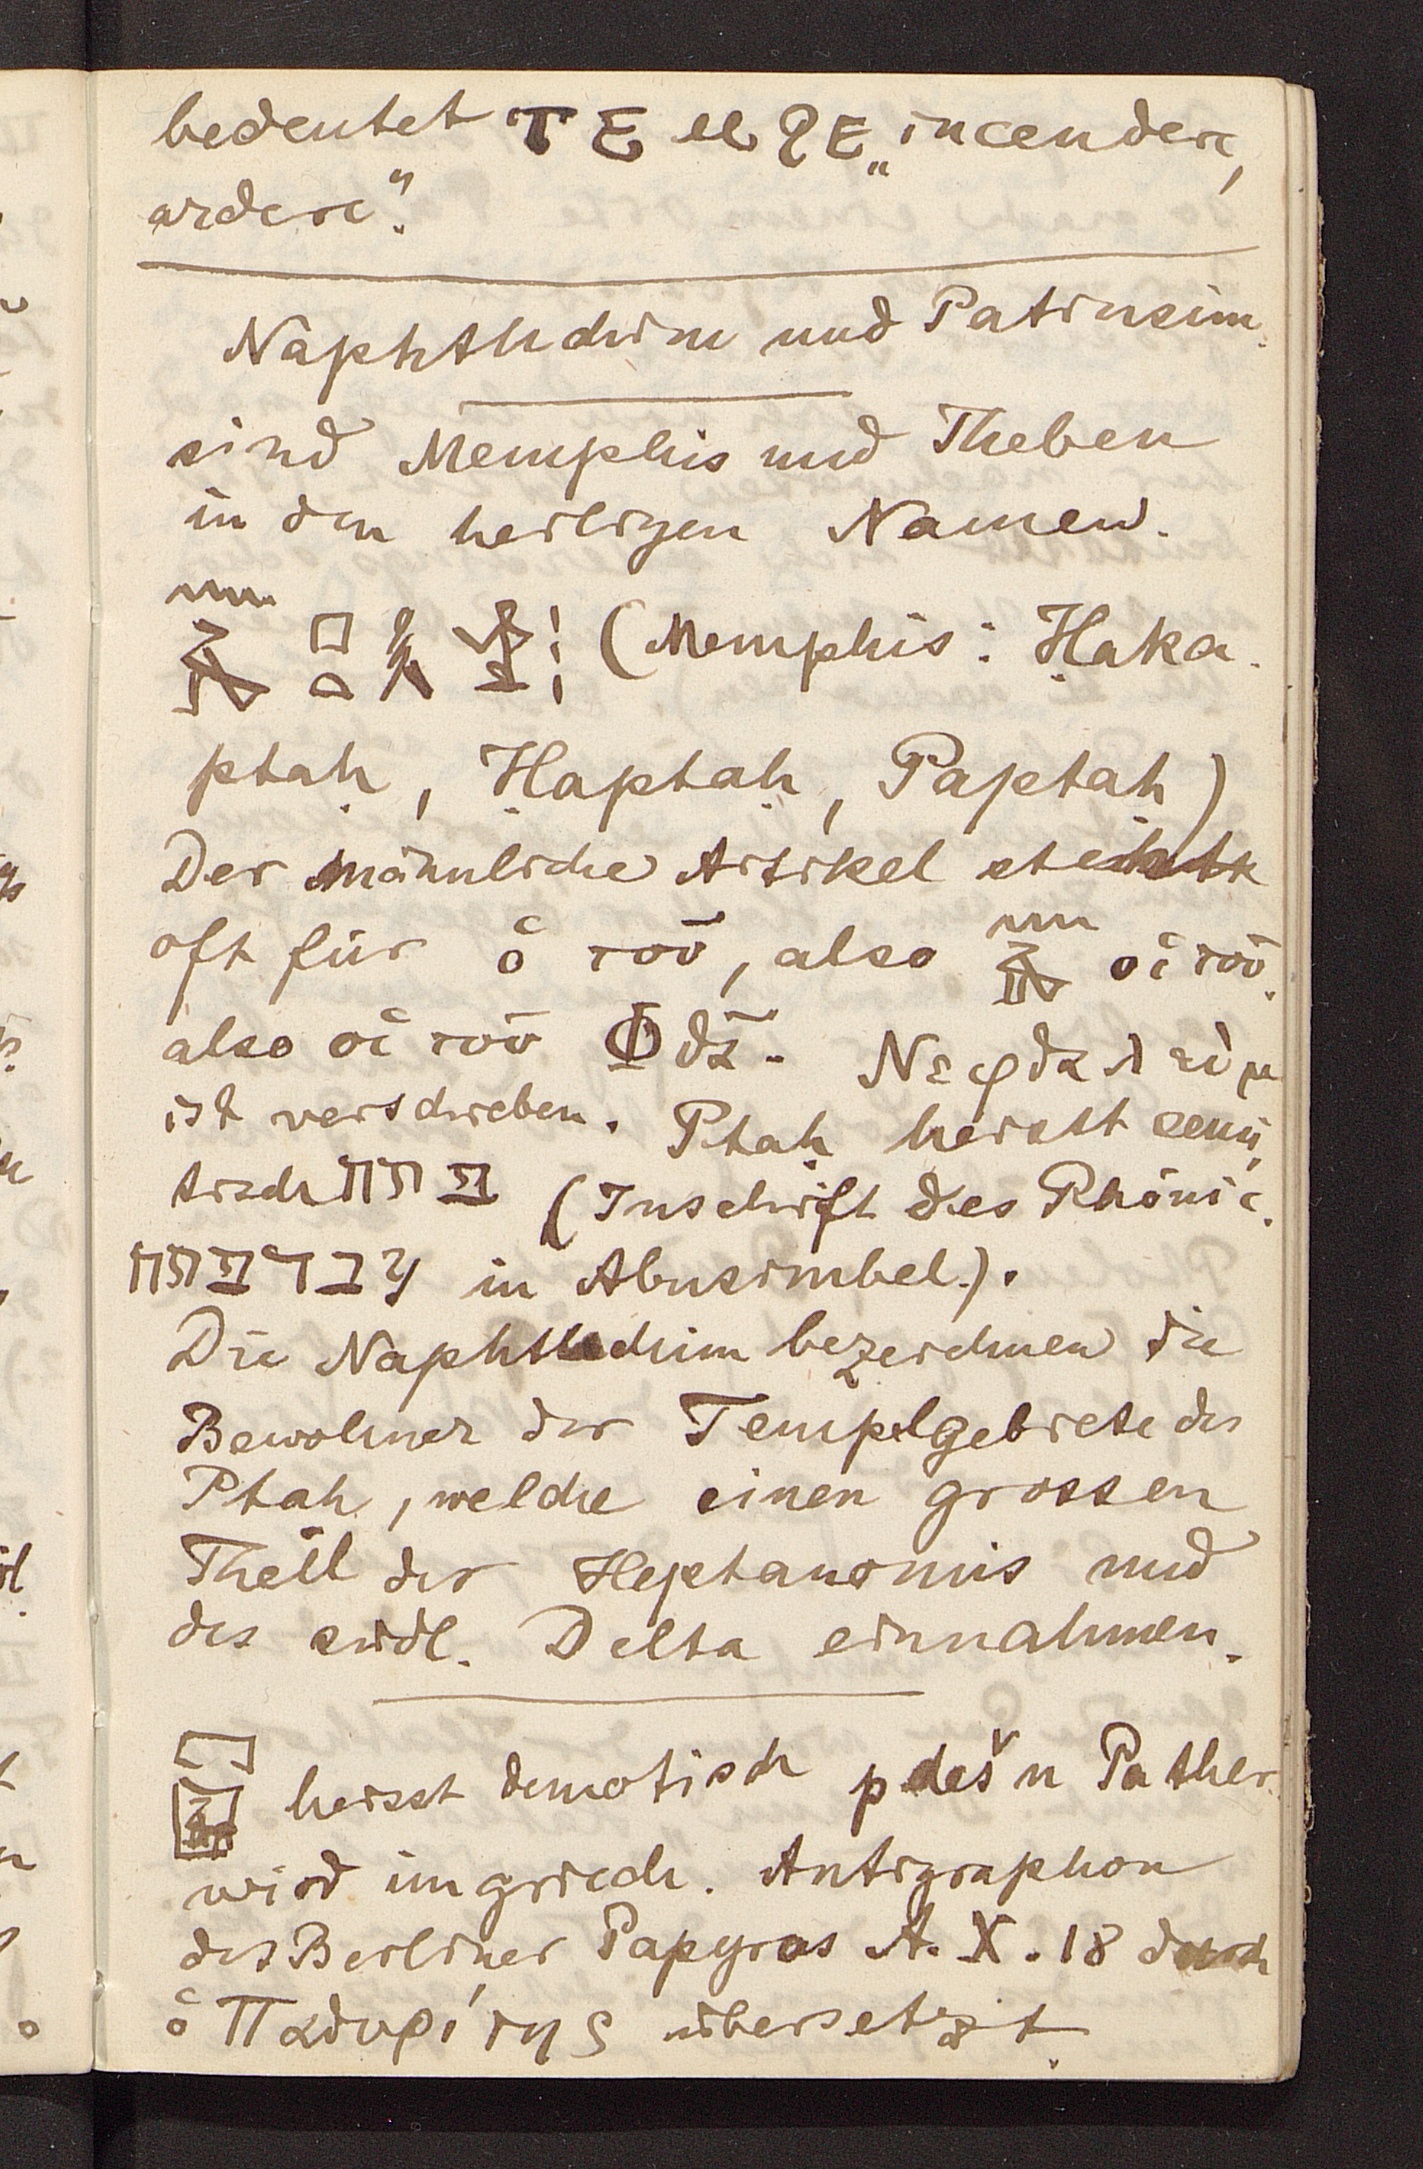 bedeutet ⲦⲈⲘϨⲈ „incendere,
ardere“.
Naphthuhim und Patrusim
sind Memphis und Theben
in den heiligen Namen.
(Memphis: Ḥaka-
ptaḥ, Ḥaptaḥ, Paptaḥ)
Der männliche Artikel steht
oft für ὁ τοῦ, also οἱ τοῦ,
also οἱ τοῦ Φθᾶ. Νεφθαλείμ
ist verschrieben. Ptaḥ heisst semi-
tisch פתח (Inschrift des Phönic.
עבדפתח in Abusimbel).
Die Naphthuhim bezeichnen die
Bewohner der Tempelgebiete des
Ptah, welche einen grossen
Theil der Heptanomis und
des südl. Delta einnahmen.
heisst demotisch pdeš n Pather
wird im griech. Antigraphon
des Berliner Papyros A. X. 18 durch
ὁ Παθυρίτης übersetzt.